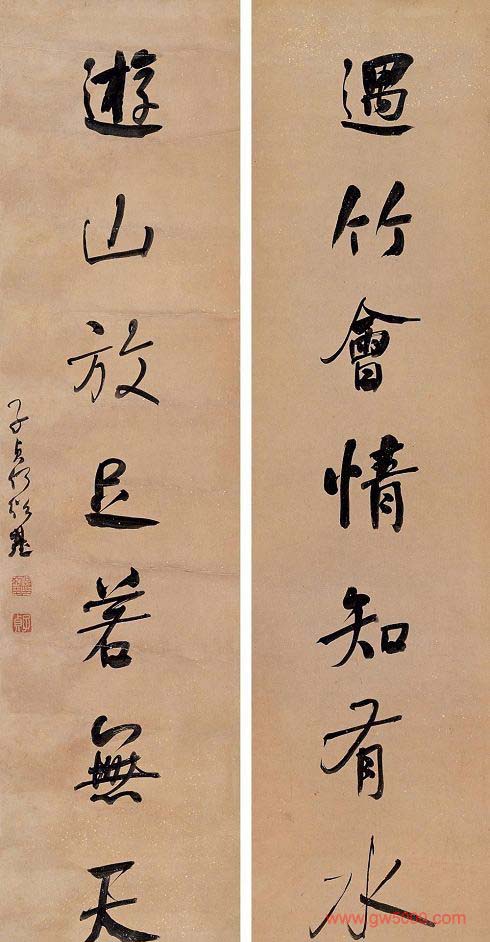 遇竹會情知有水
遊山放足若無天
子貞何紹基
www.gw5009.com